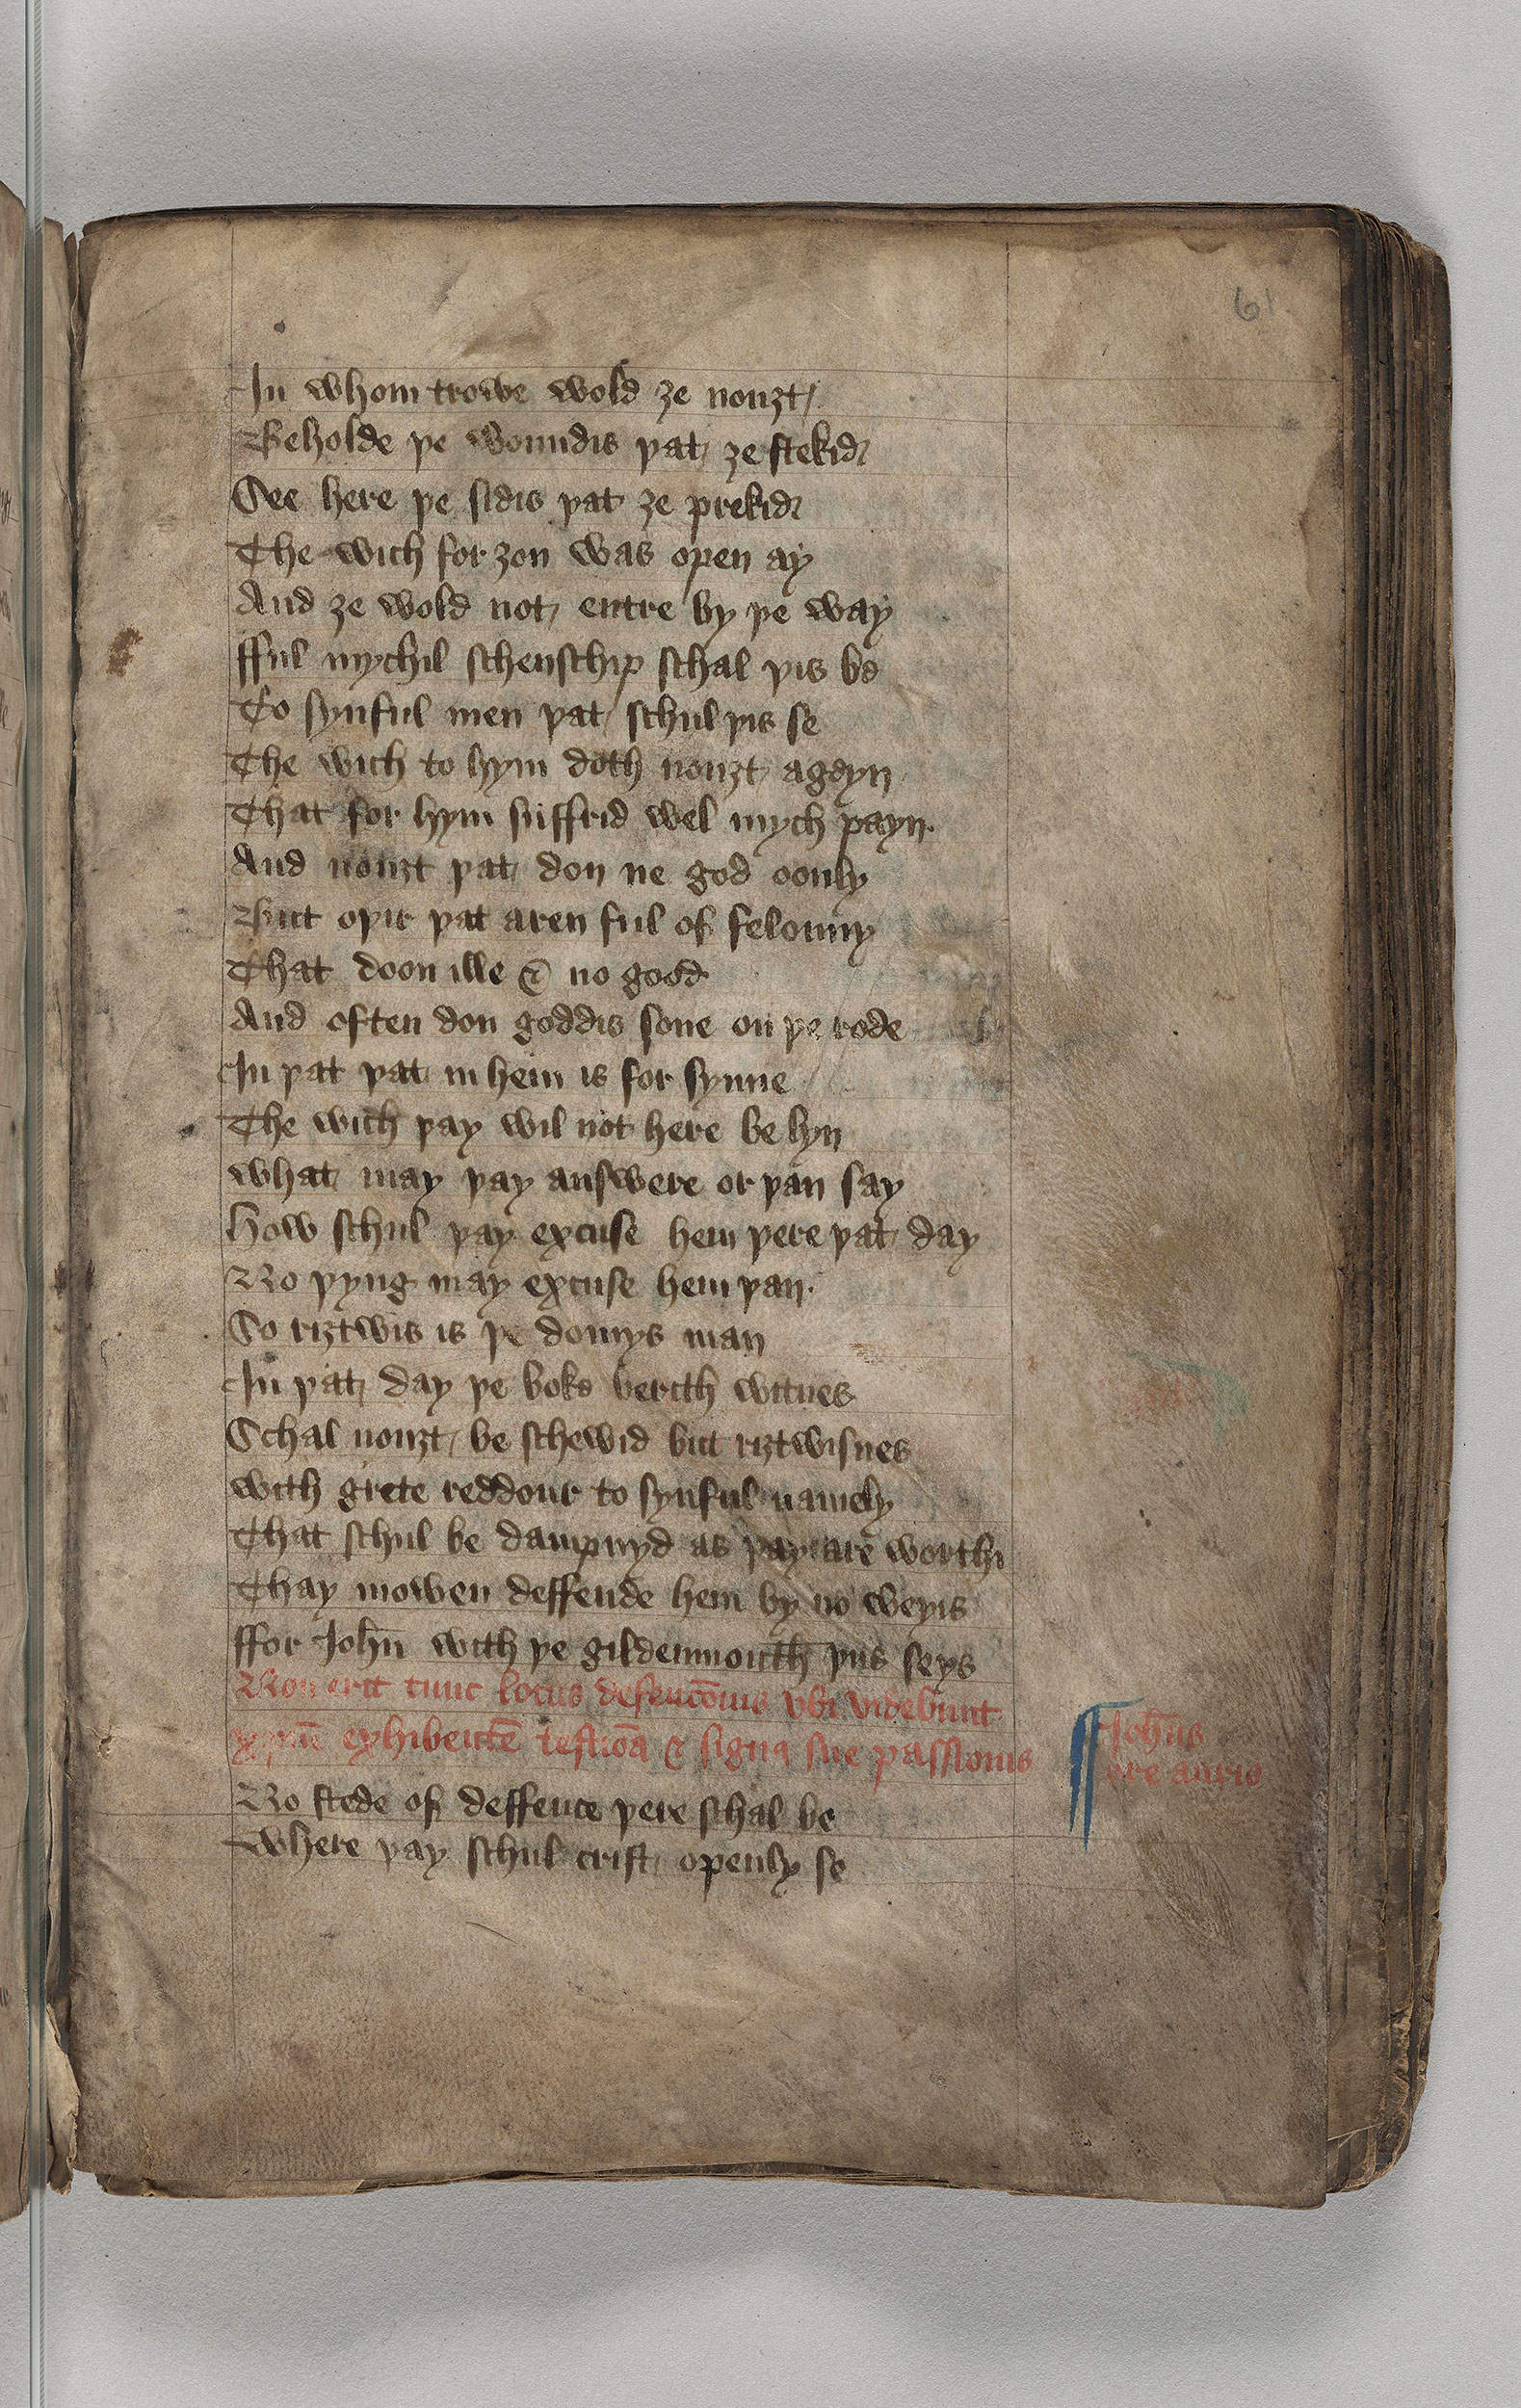 61
In whom trowe wold ȝe nouȝt
Beholde þe woundis þat ȝe stekid
See here þe sidis þat ȝe prekid
The wich for ȝou was open ay
And ȝe wold not entre by þe way
fful mychil schenschip schal þis be
To synful men þat schul þis se
The wich to hym doth nouȝt agayn
That for hym suffrid wel mych payn
And nouȝt þat don ne god oonly
But oþir þat aren ful of felonny
That doon ille & no good
And often don goddis sone on þe rode
In þat þat in hem is for synne
The wich þay wil not here be lyn
what may þay answere or þan say
How schul þay excuse hem þere þat day
No þyng may excuse hem þan
So riȝtwis is þe domys man
In þat day þe boke berith witnes
Schal nouȝt be schewid but riȝtwisnes
with grete reddour to synful namely
That schul be dampnyd as þay are worthi
Thay mowen deffende hem by no weyis
ffor Joħn with þe gildenmouth þus seys
Non erit tunc locus defencōnis vbi videbunt
xp̄m exhibentē testiōa & signa sue passionis
Joħns
ore aurio
No stede of deffence þere schal be
where þay schul crist openly se